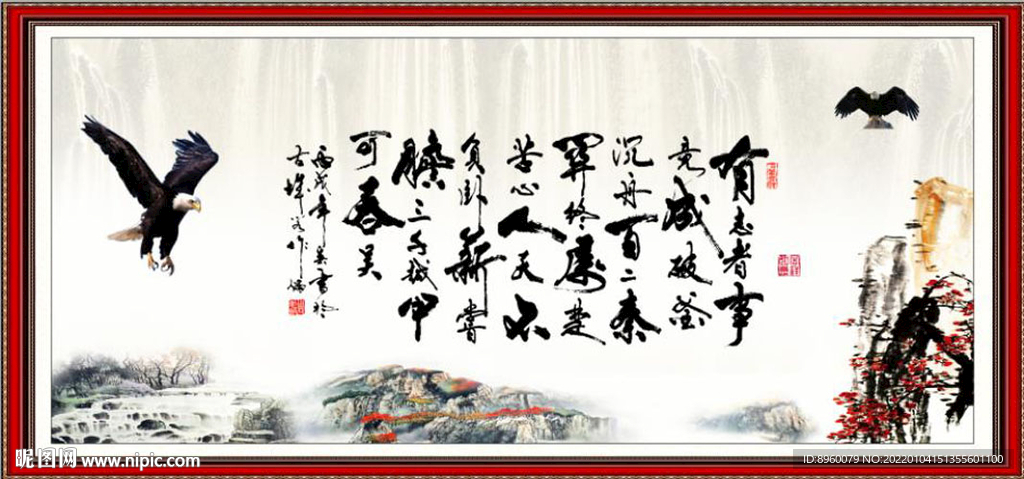 有志者事
竟成破釜
沉舟百二秦
關终属楚
苦心人天不
负卧薪嚐
膽三千越甲
可吞吴
丙戌年
昵图网 www.nipic.com
ID:8960079 NO:20220104151355601100